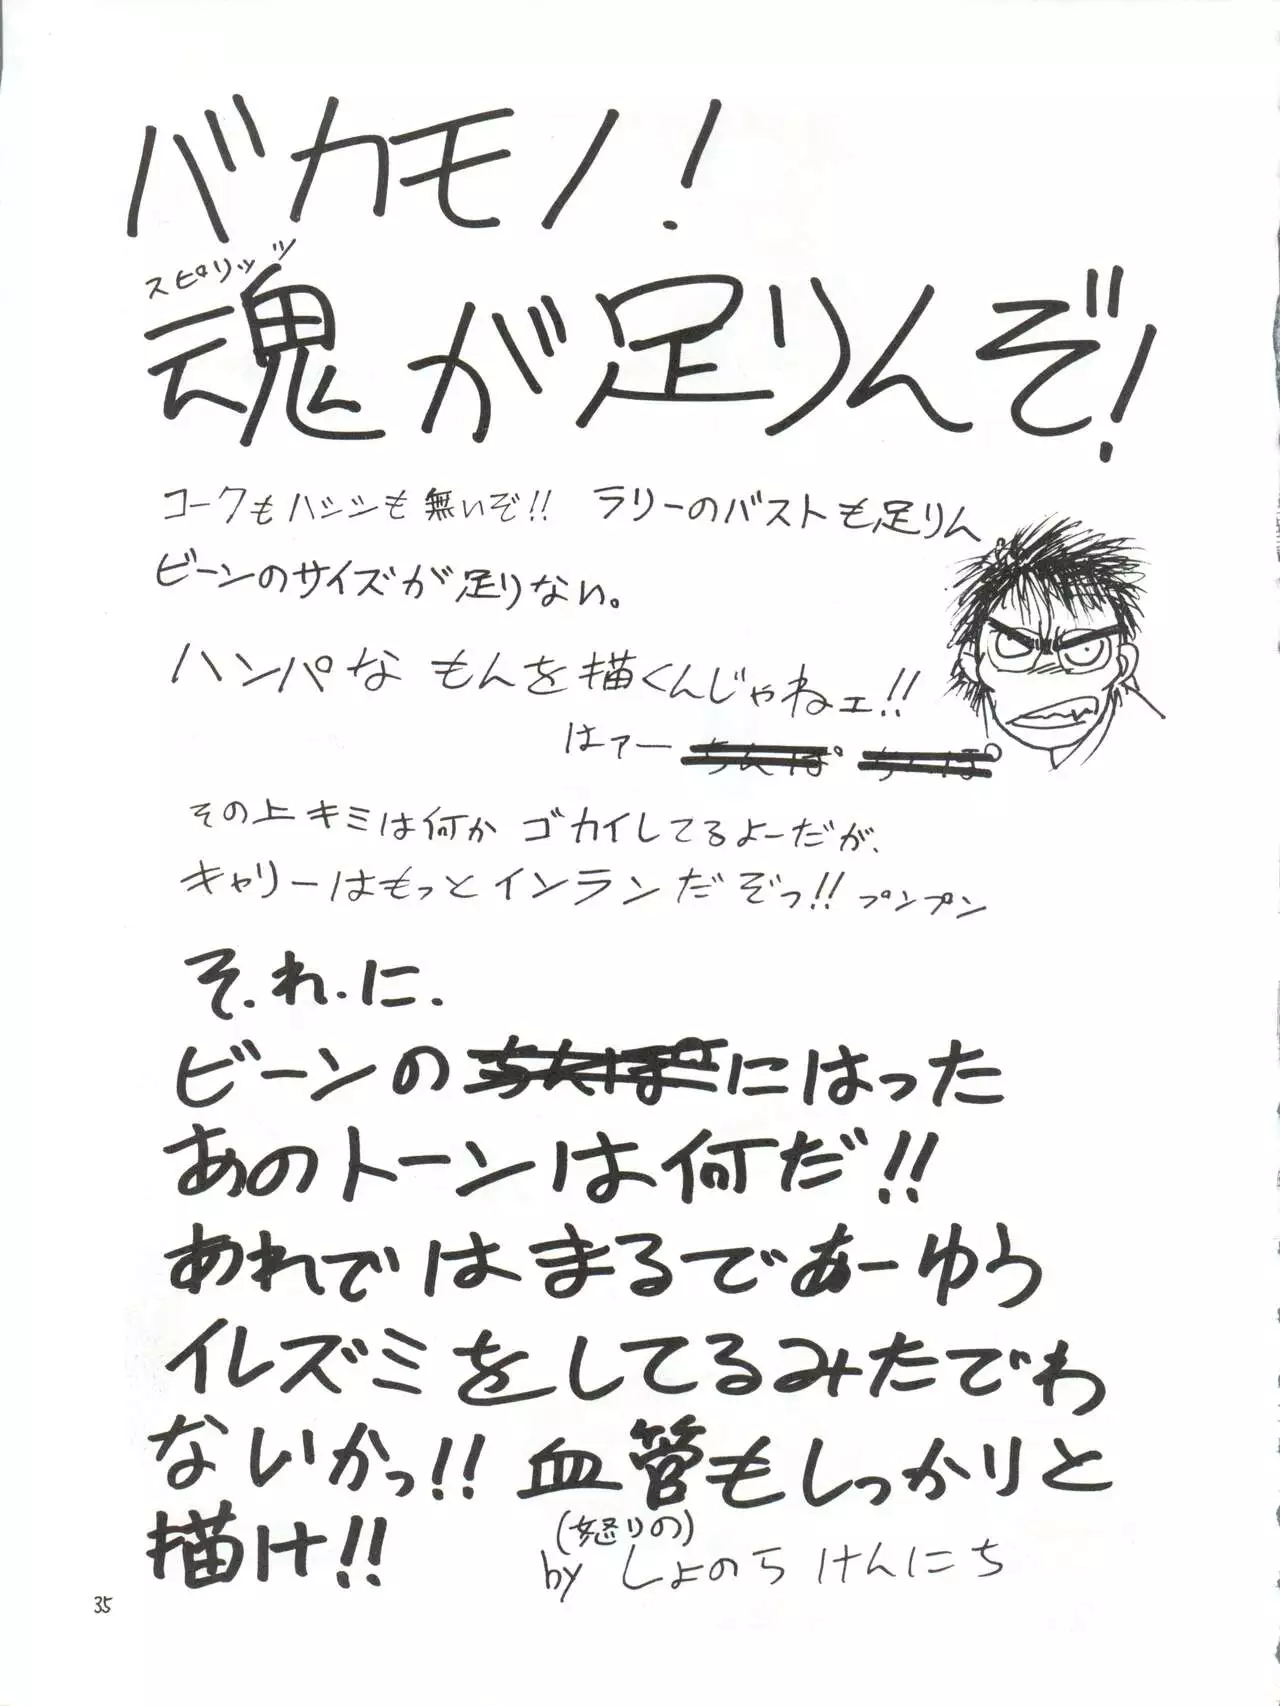 バカモノ!
スピリッツ
魂が足りんぞ!
コークもハシシも無いぞ!! ラリーのバストも足りん
ビーンのサイズが足りない。
ハンパなもんを描くんじゃねェ!!
はァー ちんぽ ちんぽ
その上キミは何かゴカイしてるよーだが、
キャリーはもっとインランだぞっ!! プンプン
そ.れ.に.
ビーンのちんぽにはった
あのトーンは何だ!!
あれではまるであーゆう
イレズミをしてるみたでわ
ないかっ!! 血管もしっかりと
描け!!
(怒りの)
by しょのら けんにち
35